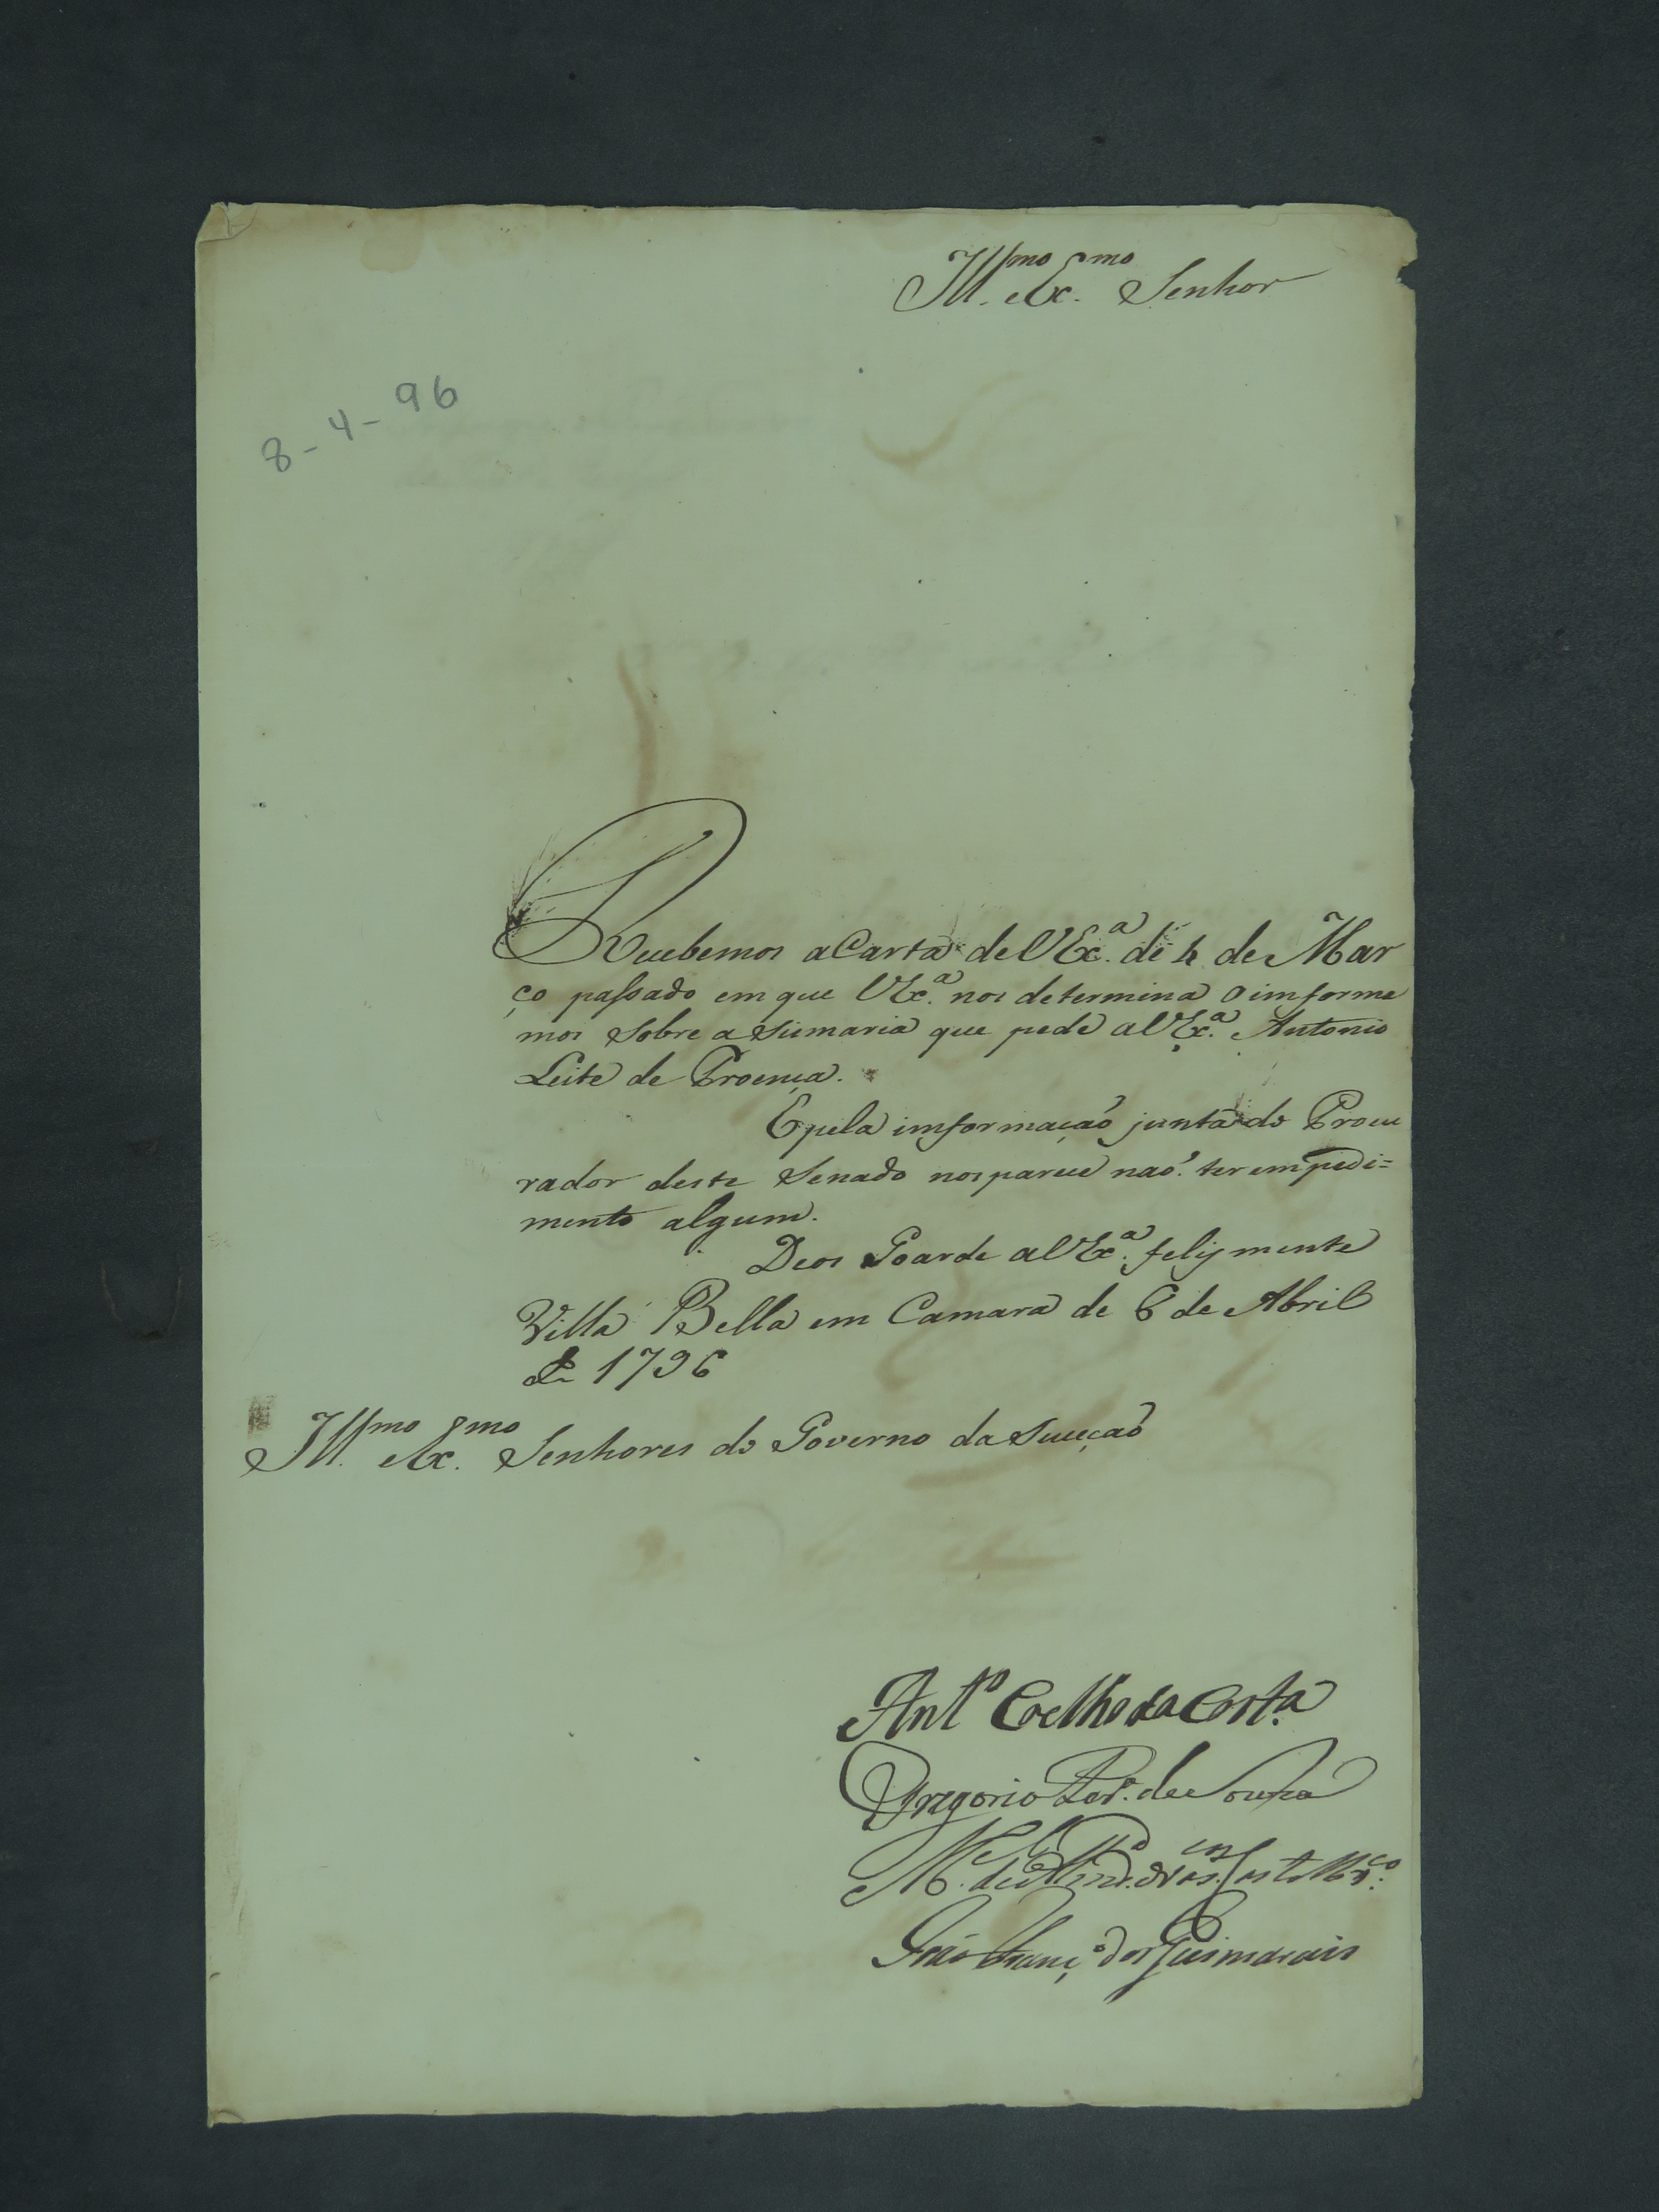 Ill.mo e Ex.mo Senhor
8-4-96
Recebemos a Carta de V Ex.ª de 4 de Mar
ço passado em que V Ex.ª nos determina o imforme
mos sobre a sismaria que pede a V Ex.ª Antonio
Leite de Proença.
E pela imformação junta do Procu
rador deste Senado nos parece não ter empedi=
mento algum.
Deos Goarde a V Ex.ª felismente
Villa Bella em Camara de 6 de Abril
de 1796
Ill.mo e Ex.mo Senhores do Governo da Suceção
Ant.º Coelho da Costa
Gregorio Per.ª de Souza
João Franç.º dos Guimarais